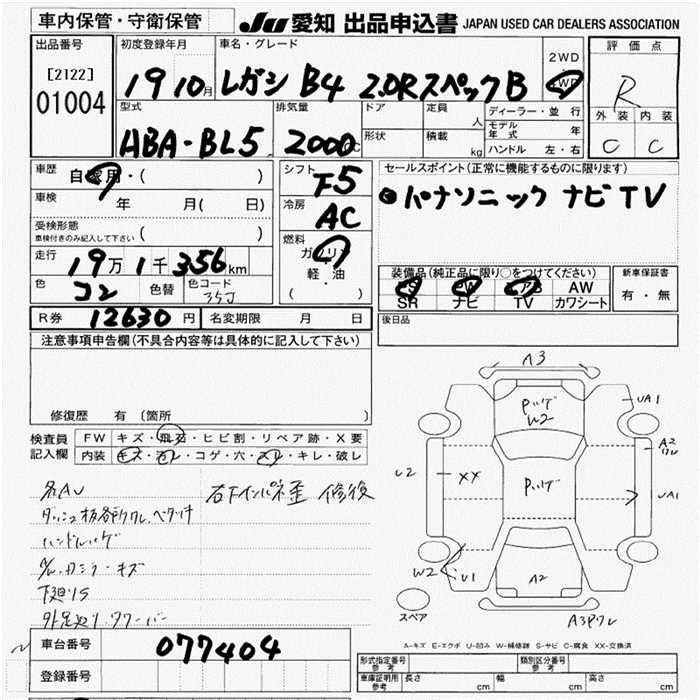 車内保管・守衛保管
JU 愛知 出品申込書 JAPAN USED CAR DEALERS ASSOCIATION
出品番号
[2122]
01004
初度登録年月
19 10月
車名・グレード
レガシ B4 2.0RスペックB
2WD
4WD
評価点
R
外装 内装
C C
型式
HBA-BL5
排気量
2000cc
ドア
形状
定員
人
積載
kg
ディーラー・並行
モデル年式 年
ハンドル 左・右
車歴
自家用・( )
車検 年 月( 日)
受検形態
車検付きのみ記入して下さい ( )
走行 19万1千356km
色 コン 色替 色コード 35J
シフト F5
冷房 AC
燃料
ガソリン
軽・油
( )
セールスポイント(正常に機能するものに限ります)
◎パナソニック ナビ TV
装備品(純正品に限り○をつけてください)
PS PW エアB AW
SR ナビ TV カワシート
新車保証書
有・無
後日品
R券 12630円 名変期限 月 日
注意事項申告欄(不具合内容等は具体的に記入して下さい)
修復歴 有(箇所 )
検査員記入欄
FW キズ・飛石・ヒビ割・リペア跡・X要
内装 キズ・汚レ・コゲ・穴・スレ・キレ・破レ
各AU
右下インパネ歪 修復
ハンドルハゲ
下廻りS
車台番号 077404
登録番号
A3
Pハゲ
W2
UA1
A2
ワレ
U2
XX
Pハゲ
UA1
W2
U1
A2
スペア
A3Pワレ
A-キズ E-エクボ U-凹み W-補修跡 S-サビ C-腐食 XX-交換済
形式指定番号 参考
類別区分番号 参考
車庫証明用 参考
長さ cm 幅 cm 高さ cm